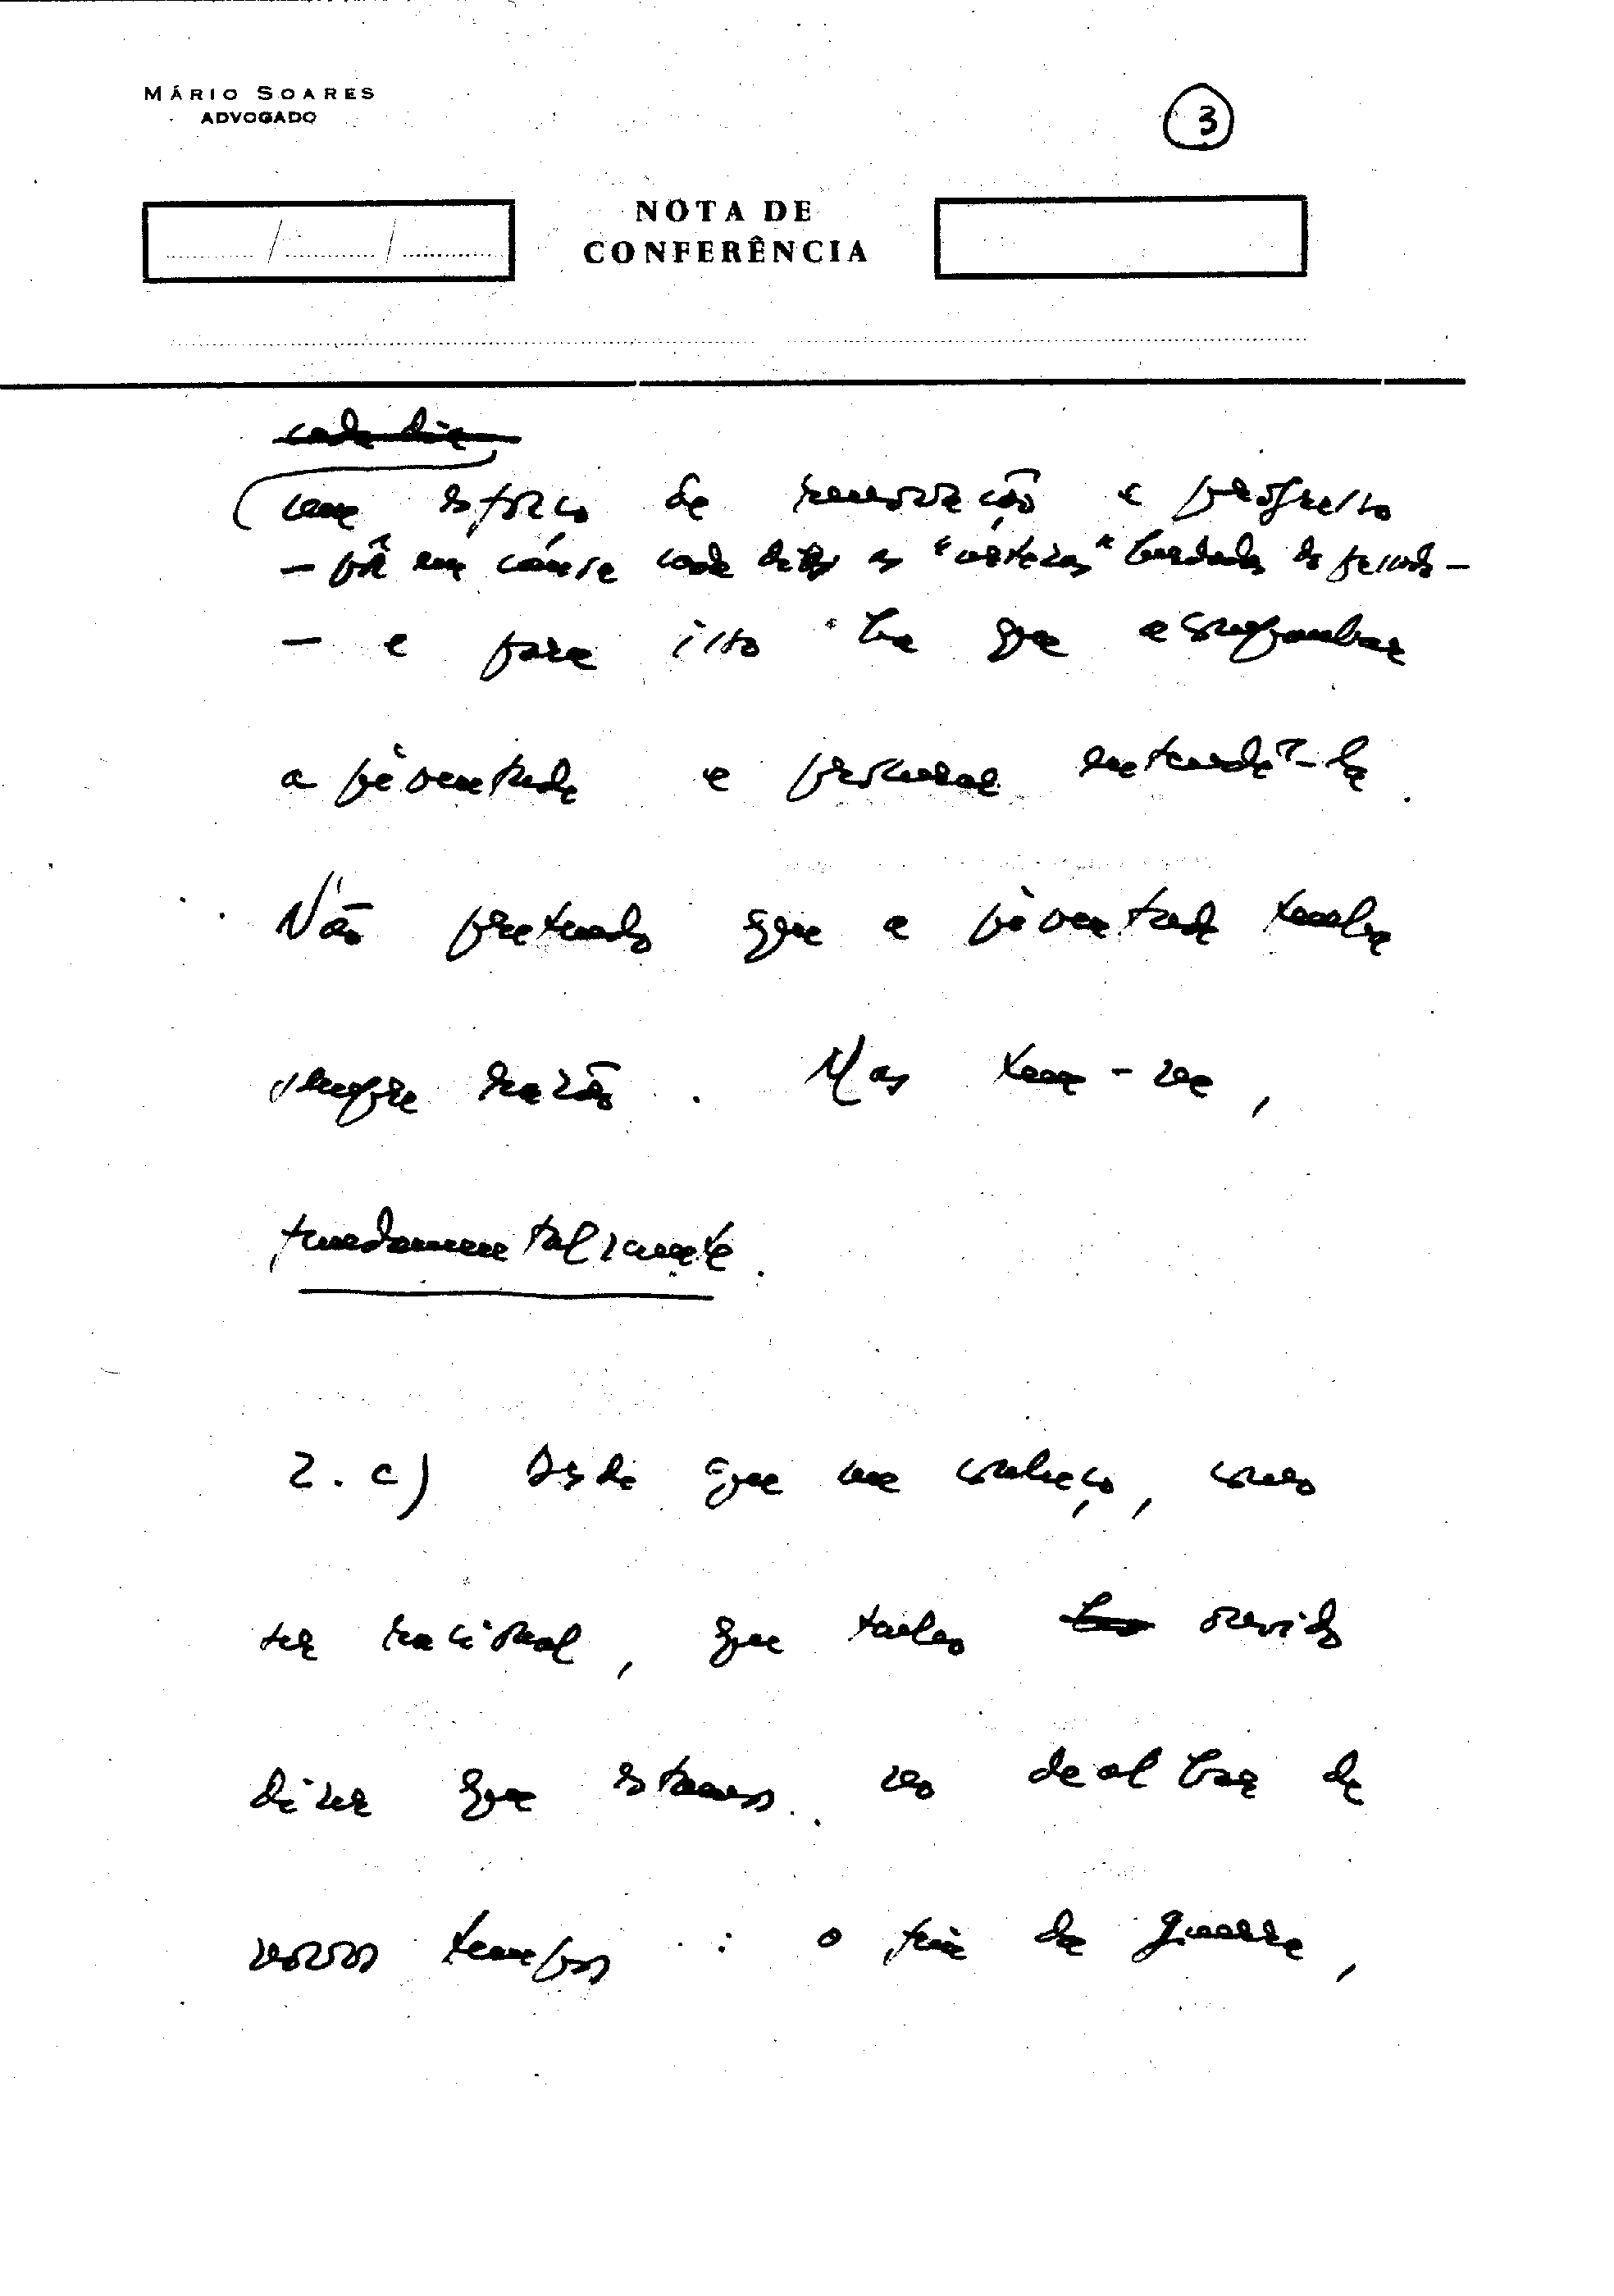 MÁRIO SOARES
ADVOGADO
3
NOTA DE
CONFERÊNCIA
cada dia
um esforço de renovação e progresso
– pôr em causa cada dia as "certezas" herdadas do passado –
– e para isso há que acompanhar
a juventude e procurar entendê-la.
Não pretendo que a juventude tenha
sempre razão. Mas tem-na,
fundamentalmente.
2. c) Desde que me conheço, como
ser racional, que tenho ouvido
dizer que estamos no dealbar de
novos tempos: o fim da guerra,